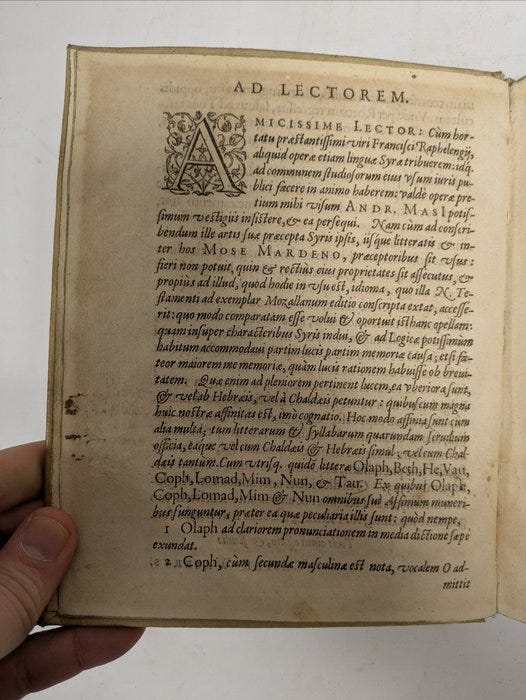 AD LECTOREM.
AMICISSIME LECTOR: Cùm hor-
tatu præstantissimi viri Francisci Raphelengij,
aliquid operæ etiam linguæ Syræ tribuerem: idq́.
ad communem studiosorum eius vsum iuris pu-
blici facere in animo haberem: valdè operæ pre-
tium mihi visum ANDR. MASI potis-
simum vestigiis insistere, & ea persequi. Nam cùm ad conscri-
bendum ille artis suæ præcepta Syris ipsis, iisque litteratis & in-
ter hos MOSE MARDENO, præceptoribus sit vsus:
fieri non potuit, quin & rectiùs eius proprietates sit assecutus, &
propiùs ad illud, quod hodie in vsu est, idioma, quo illa N. Te-
stamenti ad exemplar Mozallanum editio conscripta extat, accesse-
rit: quo modo comparatam esse volui & oportuit isthanc opellam:
quam insuper characteribus Syris indui, & ad Logicæ potissimùm
habitum accommodaui partim lucis partim memoriæ causa; etsi fa-
teor maiorem me memoriæ, quàm lucis rationem habuisse ob breui-
tatem. Quæ enim ad pleniorem pertinent lucem, ea vberiora sunt,
& vel ab Hebræis, vel à Chaldæis petuntur: quibuscum magna
huic nostræ affinitas est, imò cognatio. Hoc modo affinia sunt cùm
alia multa, tum litterarum & syllabarum quarundam seruilium
officia, eaque vel cum Chaldæis & Hebræis simul; vel cum Chal-
dæis tantùm. Cum vtrisq́. quidẽ litteræ Olaph, Beth, He, Vau,
Coph, Lomad, Mim, Nun, & Tau. Ex quibus Olaph,
Coph, Lomad, Mim & Nun omnibus sui Affinium muneri-
bus funguntur, præter ea quæ peculiaria illis sunt: quòd nempe,
1 Olaph ad clariorem pronunciationem in media dictione sæpe
exundat.
2 Coph, cùm secundæ masculinæ est nota, vocalem O ad-
mittit